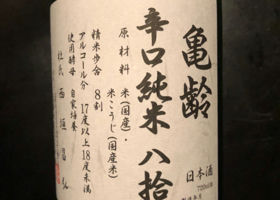 亀齢
辛口純米 八拾
原材料 米(国産)・
米こうじ(国産米)
精米歩合 8割
アルコール分 17度以上18度未満
使用酵母 自家培養
杜氏 西垣昌弘
日本酒
720ml